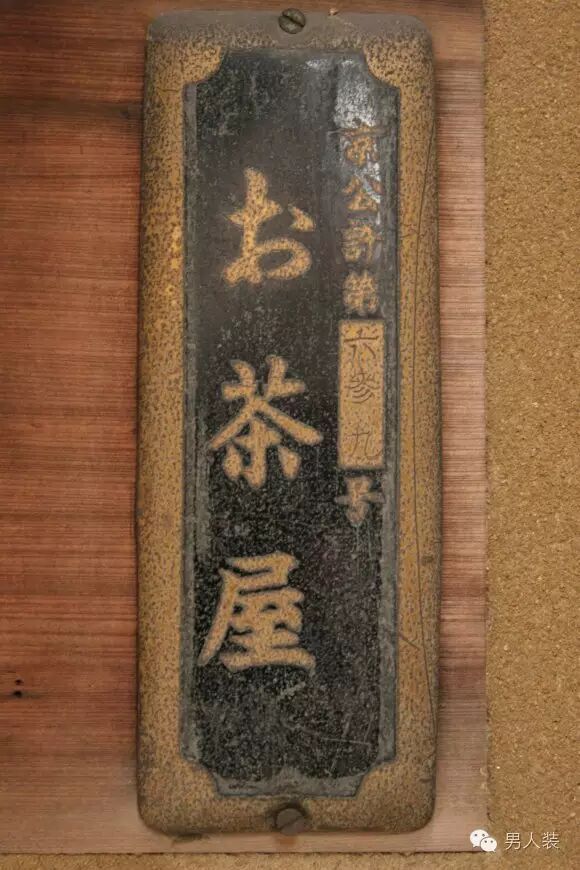 京公許第六參九号
お茶屋
男人装